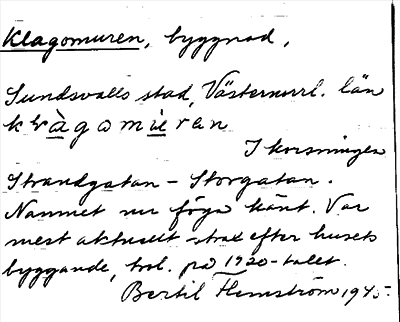 Klagomuren, byggnad,
Sundsvalls stad, Västernorrl. län
I korsningen
Strandgatan - Storgatan.
Namnet nu föga känt. Var
mest aktuellt strax efter husets
byggande, trol. på 1920-talet.
Bertil Flemström 1945.